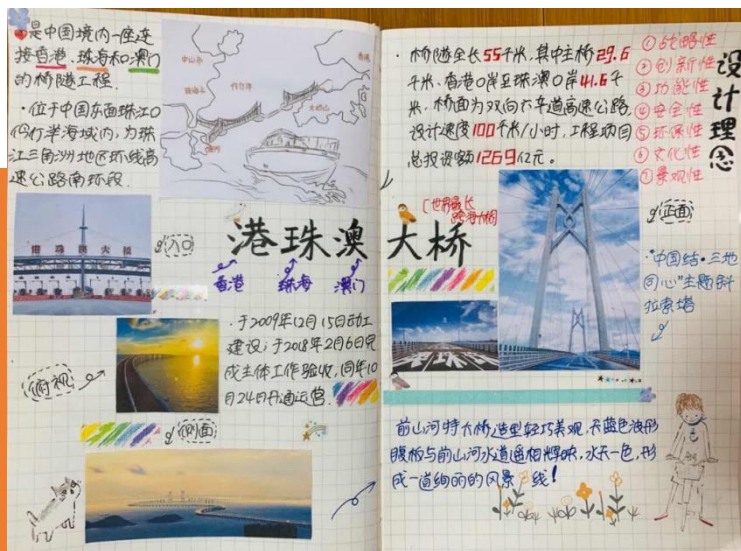 是中国境内一座连
接香港、珠海和澳门
的桥隧工程.
·位于中国东面珠江口
伶仃洋海域内,为珠
江三角洲地区环线高
速公路南环段.
中山市
珠海市
伶仃洋
大屿山
香港
澳门
港珠澳大桥
入口
港珠澳
香港 珠海 澳门
·于2009年12月15日动工
建设;于2018年2月6日完
成主体工作验收,同年10
月24日开通运营.
俯视
侧面
·桥隧全长55千米,其中主桥29.6
千米、香港口岸至珠澳口岸41.6千
米,桥面为双向六车道高速公路,
设计速度100千米/小时,工程项目
总投资额1269亿元。
设计理念
①战略性
②创新性
③功能性
④安全性
⑤环保性
⑥文化性
⑦景观性
世界最长
跨海大桥
大桥
正面
·"中国结·三地
同心"主题斜
拉索塔
前山河特大桥造型轻巧美观,天蓝色波形
腹板与前山河水道遥相辉映,水天一色,形
成一道绚丽的风景线!